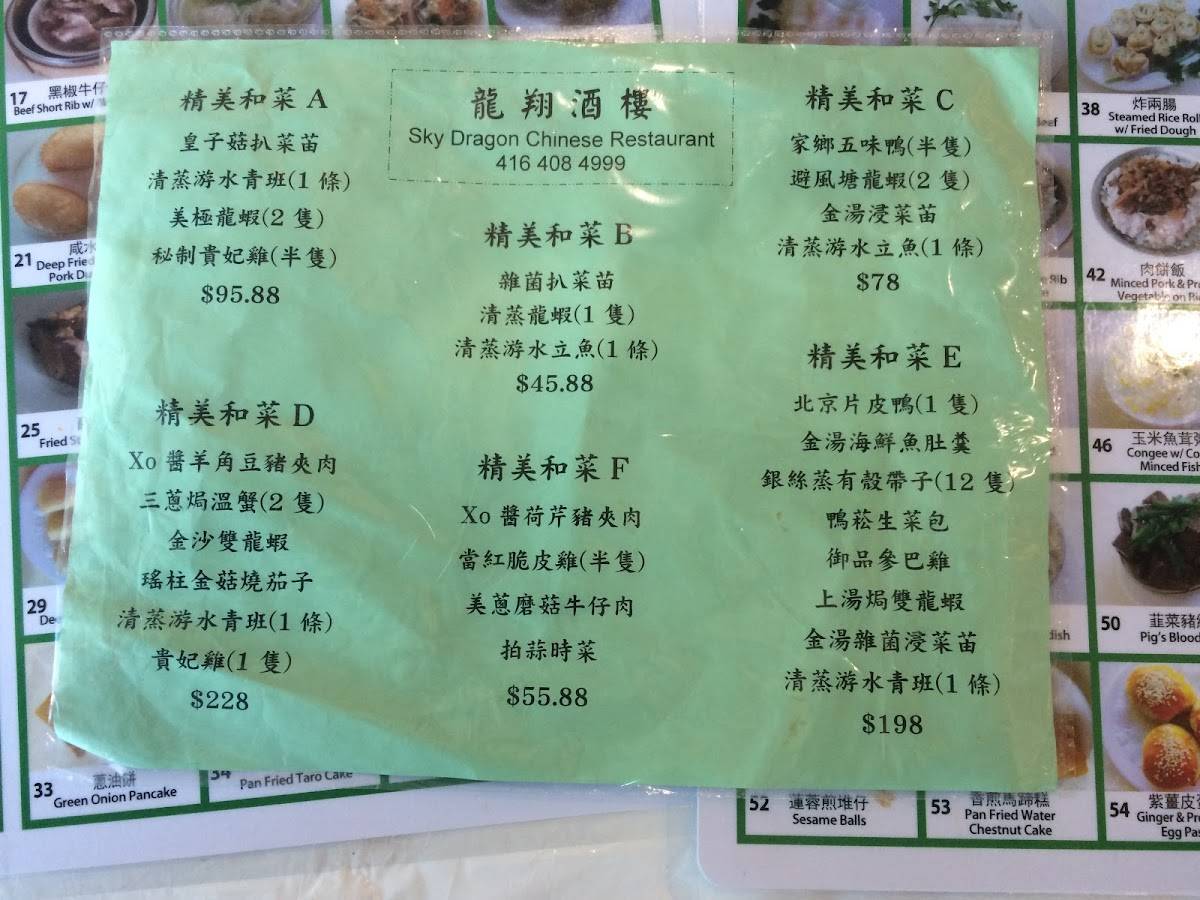 精美和菜 A
皇子菇扒菜苗
清蒸游水青班(1 條)
美極龍蝦(2 隻)
秘制貴妃雞(半隻)
$95.88
龍翔酒樓
Sky Dragon Chinese Restaurant
416 408 4999
精美和菜 B
雜菌扒菜苗
清蒸龍蝦(1 隻)
清蒸游水立魚(1 條)
$45.88
精美和菜 C
家鄉五味鴨(半隻)
避風塘龍蝦(2 隻)
金湯浸菜苗
清蒸游水立魚(1 條)
$78
精美和菜 D
Xo 醬羊角豆豬夾肉
三蔥焗溫蟹(2 隻)
金沙雙龍蝦
瑤柱金菇燒茄子
清蒸游水青班(1 條)
貴妃雞(1 隻)
$228
精美和菜 F
Xo 醬荷芹豬夾肉
當紅脆皮雞(半隻)
美蔥磨菇牛仔肉
拍蒜時菜
$55.88
精美和菜 E
北京片皮鴨(1 隻)
金湯海鮮魚肚羹
銀絲蒸有殼帶子(12 隻)
鴨菘生菜包
御品參巴雞
上湯焗雙龍蝦
金湯雜菌浸菜苗
清蒸游水青班(1 條)
$198
17 黑椒牛仔
Beef Short Rib w/
21 咸水
Deep Fried
Pork Du
25
Fried
29
33 蔥油餅
Green Onion Pancake
34
Pan Fried Taro Cake
38 炸兩腸
Steamed Rice Roll
w/ Fried Dough
42 肉餅飯
Minced Pork & Pr
Vegetable on Ri
46 玉米魚茸粥
Congee w/ Co
Minced Fish
50 韮菜豬
Pig's Blood
52 蓮蓉煎堆仔
Sesame Balls
53 香煎馬蹄糕
Pan Fried Water
Chestnut Cake
54 紫薑皮蛋
Ginger & Pre
Egg Pas